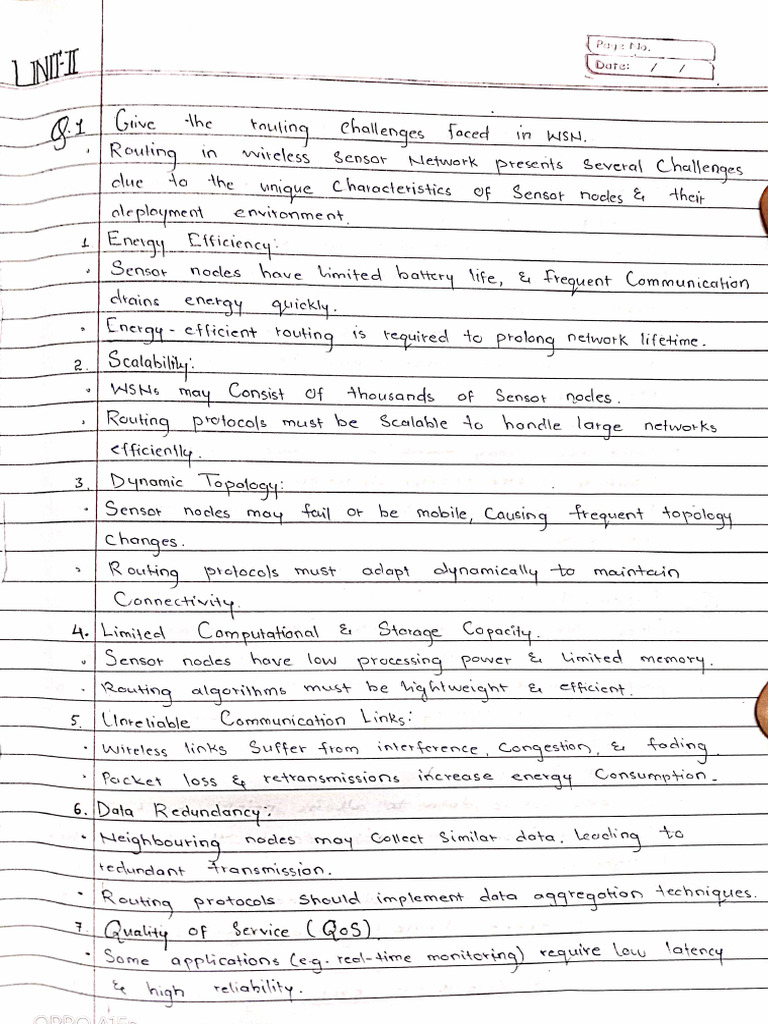 UNIT-II
Page No.
Date: / /
Q.1 Give the routing challenges faced in WSN.
• Routing in wireless Sensor Network presents Several Challenges
due to the unique Characteristics of Sensor nodes & their
deployment environment.
1 Energy Efficiency:
• Sensor nodes have limited battery life, & frequent Communication
drains energy quickly.
• Energy-efficient routing is required to prolong network lifetime.
2. Scalability:
• WSNs may Consist of thousands of Sensor nodes.
• Routing protocols must be Scalable to handle large networks
efficiently.
3. Dynamic Topology:
• Sensor nodes may fail or be mobile, Causing frequent topology
Changes.
• Routing protocols must adapt dynamically to maintain
Connectivity.
4. Limited Computational & Storage Capacity.
• Sensor nodes have low processing power & limited memory.
• Routing algorithms must be lightweight & efficient.
5. Unreliable Communication Links:
• Wireless links Suffer from interference, Congestion, & fading.
• Packet loss & retransmissions increase energy Consumption.
6. Data Redundancy:
• Neighbouring nodes may Collect Similar data, leading to
redundant transmission.
• Routing protocols should implement data aggregation techniques.
7. Quality of Service (QoS)
• Some applications (e.g. real-time monitoring) require low latency
& high reliability.